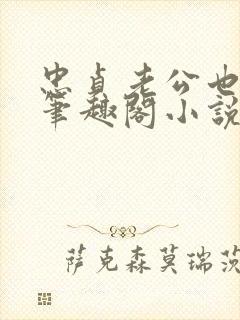 忠貞老公也
筆趣閣小說
萨克森莫瑞茨